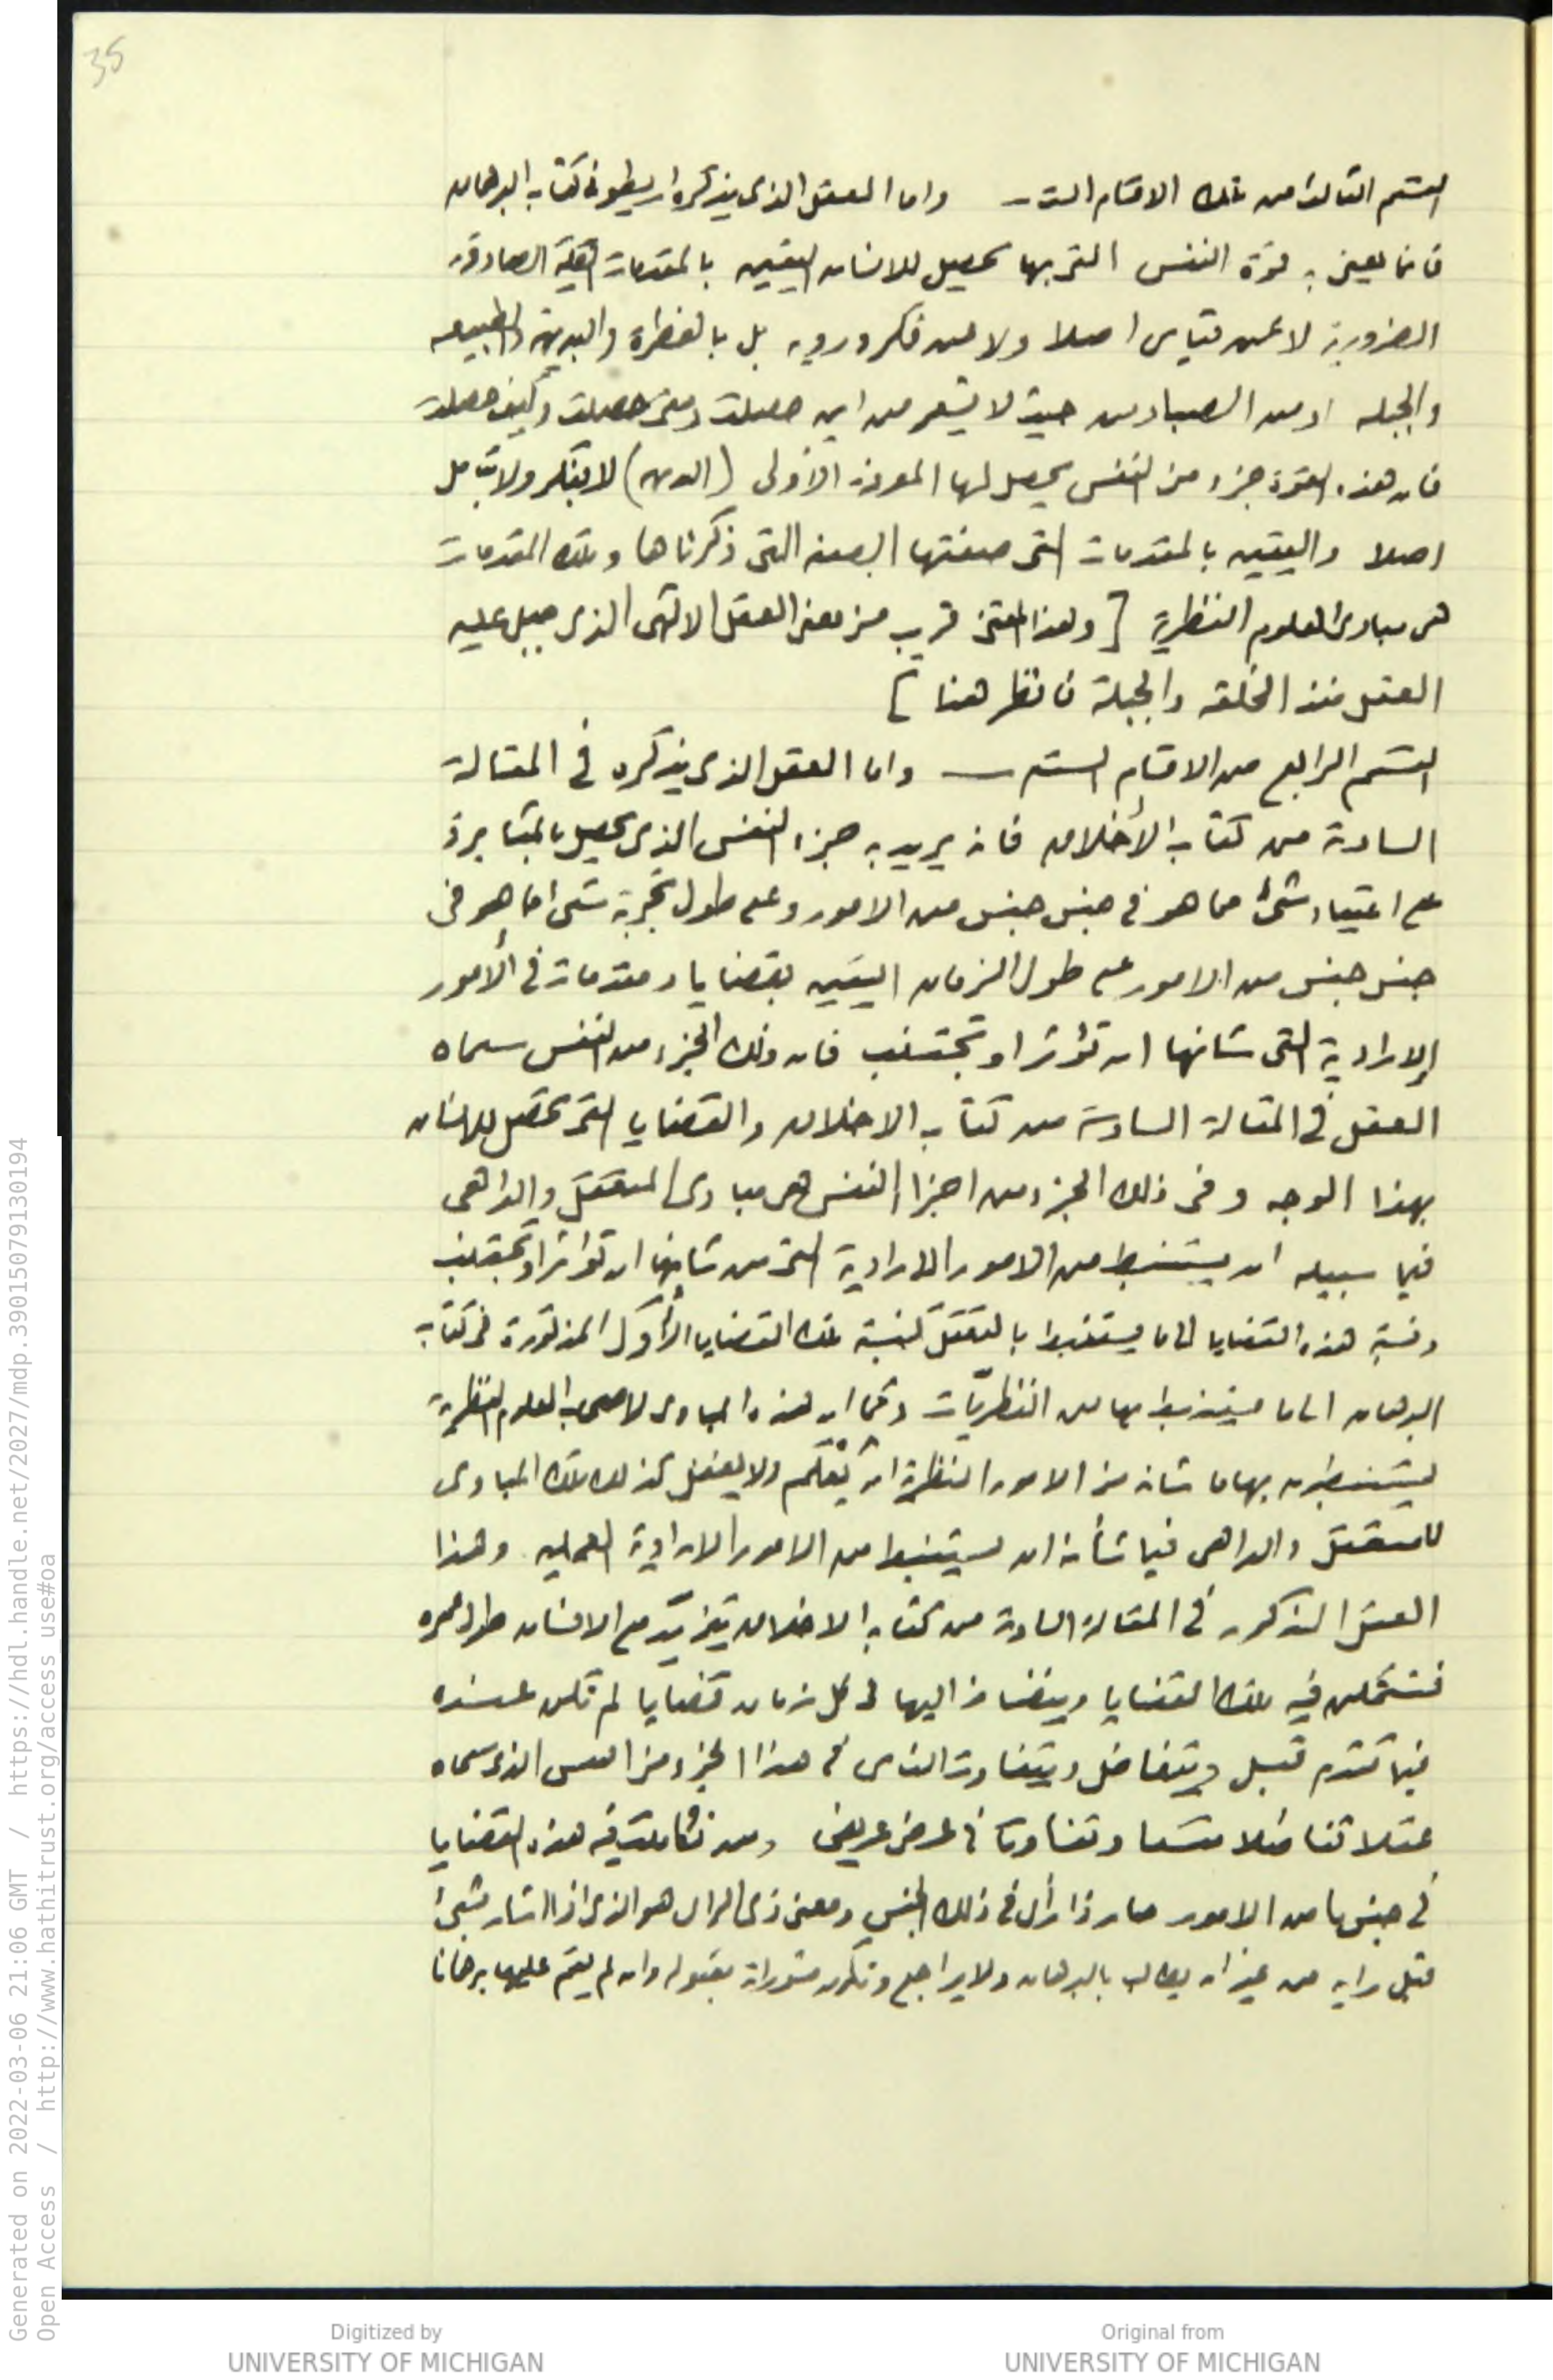 35
القسم الثالث من تلك الاقسام الستة ـ واما العقل الذى يذكره ارسطو فى كتاب البرهان
فانما يعنى به قوة النفس التى بها يحصل للانسان اليقين بالمقدمات الكلية الصادقة
الضرورية لا عن قياس اصلا ولا عن فكر ورويه بل بالفطرة والبديهة والطبيعه
والجبله او من الصبا ومن حيث لا يشعر من اين حصلت ومتى حصلت وكيف حصلت
فان هذه القوة جزء من النفس يحصل لها المعرفة الأولى لا بفكر ولا بتأمل
اصلا واليقين بالمقدمات التى صفتها الصفه التى ذكرناها وتلك المقدمات
هى مبادى العلوم النظرية [ وهذا المعنى قريب من معنى العقل الالهى الذى جبل عليه
العقل منذ الخلقه والجبلة فانظر هنا ]
القسم الرابع من الاقسام السته ـ واما العقل الذى يذكره فى المقالة
السادسة من كتاب الأخلاق فانه يريد به جزء النفس الذى يحصل بالمثابرة
على اعتياد شئ مما هو فى جنس جنس من الامور وعلى طول تجربة شئ مما هو فى
جنس جنس من الامور على طول الزمان اليقين بقضايا ومقدمات فى الأمور
الإرادية التى شانها ان تؤثر او تجتنب فان ذلك الجزء من النفس سماه
العقل فى المقالة السادسة من كتاب الاخلاق والقضايا التى تحصل للانسان
بهذا الوجه وفى ذلك الجزء من اجزاء النفس هى مبادى المتعقل والداهى
فيما سبيله ان يستنبط من الامور الارادية التى من شانها ان تؤثر او تجتنب
ونسبة هذه القضايا الى ما يستنبط بالتعقل كنسبة تلك القضايا الأول المذكورة فى كتاب
البرهان الى ما يستنبط بها من النظريّات وكما ان هذه المبادى لاصحاب العلوم النظرية
يستنبطون بها ما شانه من الامور النظرية ان يُعْلَم ولا يفعل كذلك تلك المبادى
للمتعقل والداهى فيما شأنه ان يستنبط من الامور الارادية العمليه وهذا
العقل المذكور فى المقالة السادسة من كتاب الاخلاق يتزيّد مع الانسان طول عمره
فتتمكن فيه تلك القضايا وينضاف اليها فى كل زمان قضايا لم تكن عنده
فيما تقدم قبل ويتفاضل ويتفاوت الناس فى هذا الجزء من النفس الذى سماه
عقلا تفاضلا متسعا وتفاوتا فى عرض عريض ومن تكاملت فيه هذه القضايا
فى جنس ما من الامور صار ذا رأى فى ذلك الجنس ومعنى ذى الراى هو الذى اذا اشار بشئ
قبل رايه من غير ان يطالب بالبرهان ولا يراجع وتكون مشوراته مقبوله وان لم يقم عليها برهانا
Generated on 2022-03-06 21:06 GMT / https://hdl.handle.net/2027/mdp.39015079130194
Open Access / http://www.hathitrust.org/access_use#oa
Digitized by
UNIVERSITY OF MICHIGAN
Original from
UNIVERSITY OF MICHIGAN